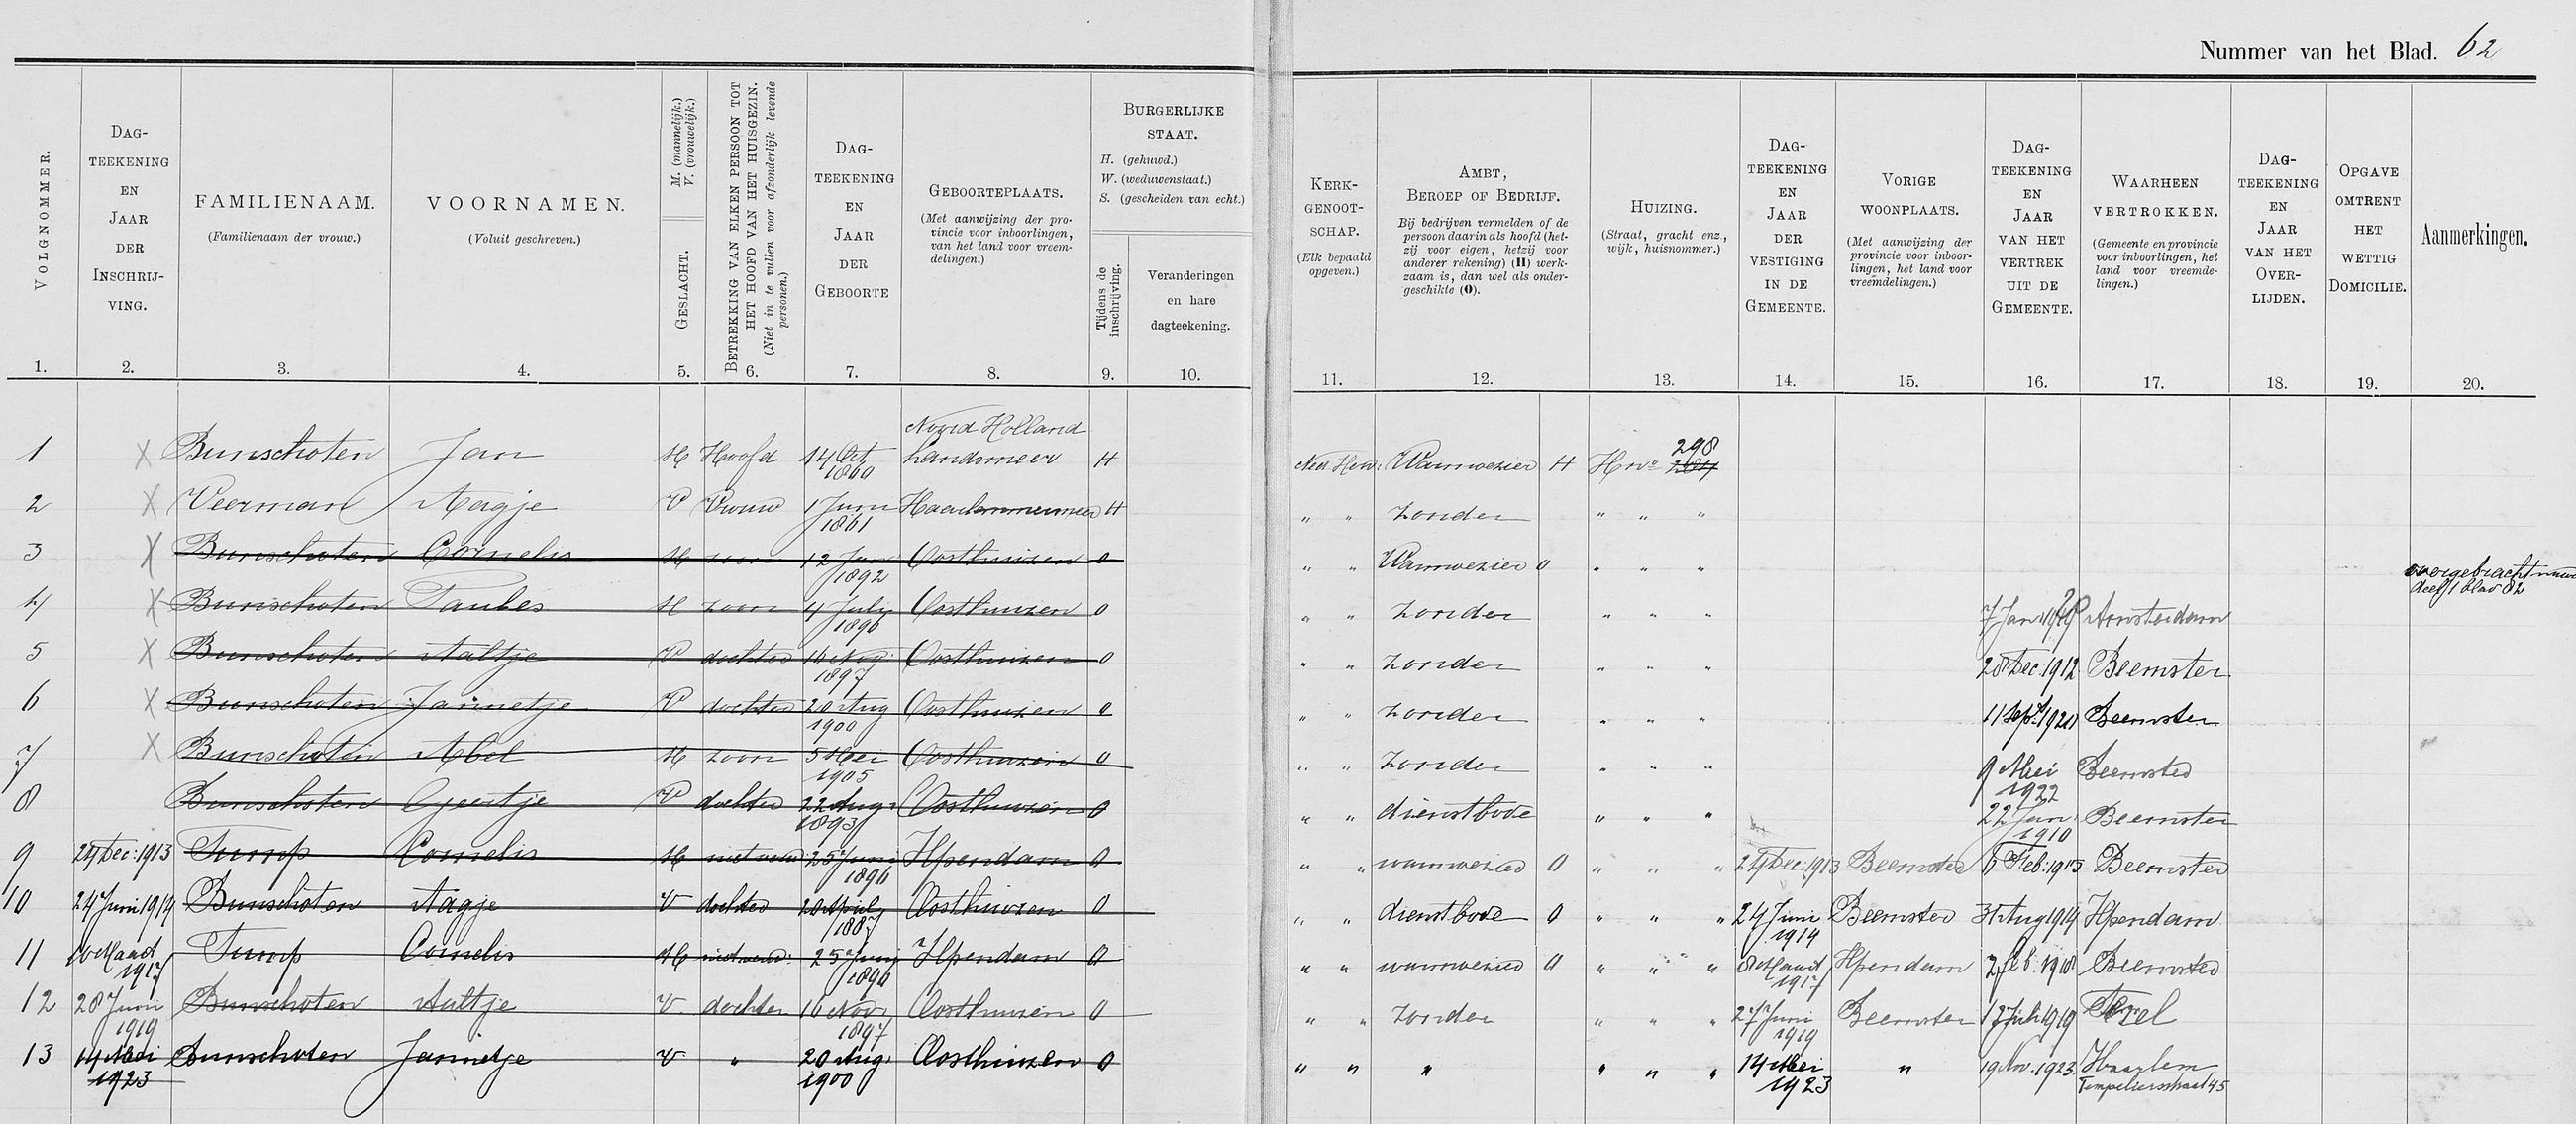 Nummer van het Blad. 62
VOLGNOMMER. 1.
DAG-TEEKENING EN JAAR DER INSCHRIJ-VING. 2.
FAMILIENAAM. (Familienaam der vrouw.) 3.
VOORNAMEN. (Voluit geschreven.) 4.
GESLACHT. M. (mannelijk.) V. (vrouwelijk.) 5.
BETREKKING VAN ELKEN PERSOON TOT HET HOOFD VAN HET HUISGEZIN. (Niet in te vullen voor afzonderlijk levende personen.) 6.
DAG-TEEKENING EN JAAR DER GEBOORTE 7.
GEBOORTEPLAATS. (Met aanwijzing der pro-vincie voor inboorlingen, van het land voor vreem-delingen.) 8.
BURGERLIJKE STAAT. H. (gehuwd.) W. (weduwenstaat.) S. (gescheiden van echt.)
Tijdens de inschrijving. 9.
Veranderingen en hare dagteekening. 10.
KERK-GENOOT-SCHAP. (Elk bepaald opgeven.) 11.
AMBT, BEROEP OF BEDRIJF. Bij bedrijven vermelden of de persoon daarin als hoofd (het-zij voor eigen, hetzij voor anderer rekening) (H) werk-zaam is, dan wel als onder-geschikte (O). 12.
HUIZING. (Straat, gracht enz., wijk, huisnommer.) 13.
DAG-TEEKENING EN JAAR DER VESTIGING IN DE GEMEENTE. 14.
VORIGE WOONPLAATS. (Met aanwijzing der provincie voor inboor-lingen, het land voor vreemdelingen.) 15.
DAG-TEEKENING EN JAAR VAN HET VERTREK UIT DE GEMEENTE. 16.
WAARHEEN VERTROKKEN. (Gemeente en provincie voor inboorlingen, het land voor vreemde-lingen.) 17.
DAG-TEEKENING EN JAAR VAN HET OVER-LIJDEN. 18.
OPGAVE OMTRENT HET WETTIG DOMICILIE. 19.
Aanmerkingen. 20.
Noord Holland
1 X Bunschoten Jan M Hoofd 14 Oct 1860 Landsmeer H Ned. Herv. Warmoezier H H no 298 284
2 X Veerman Aagje V Vrouw 1 Juni 1861 Haarlemmermeer H " " Zonder " " "
3 X Bunschoten Cornelis M zoon 12 Jan 1892 Oosthuizen O " " Warmoezier O " " " overgebracht deel 1 blad 82
4 X Bunschoten Taubes M zoon 4 July 1896 Oosthuizen O " " Zonder " " " 7 Jan Amsterdam
5 X Bunschoten Aaltje V dochter 16 Nov. 1897 Oosthuizen O " " Zonder " " " 28 Dec. 1912 Beemster
6 X Bunschoten Jannetje V dochter 20 Aug 1900 Oosthuizen O " " Zonder " " " 11 Sept. Beemster
7 X Bunschoten Abel M zoon 5 Mei 1905 Oosthuizen O " " Zonder " " " 9 Mei 1922 Beemster
8 Bunschoten Geertje V dochter 22 Aug. 1893 Oosthuizen O " " dienstbode " " " 22 Jan. 1910 Beemster
9 24 Dec. 1913 Tump Cornelis M 25 Juni 1896 Ilpendam O " " warmoezier O " " " 24 Dec. 1913 Beemster 6 Feb. 1915 Beemster
10 24 Juni 1914 Bunschoten Aagje V dochter 20 April 1887 Oosthuizen O " " dienstbode O " " " 24 Juni 1914 Beemster 31 Aug 1914 Ilpendam
11 10 Maart 1917 Tump Cornelis M 25 Juni 1896 Ilpendam O " " warmoezier O " " " 8 Maart 1917 Ilpendam 2 feb. 1918 Beemster
12 28 Juni 1919 Bunschoten Aaltje V. dochter 16 Nov. 1897 Oosthuizen O " " Zonder " " " 27 Juni 1919 Beemster 12 Juli 1919 Texel
13 14 Mei 1923 Bunschoten Jannetje V " 20 Aug. 1900 Oosthuizen O " " " " " " 14 Mei 1923 " 19 Nov. 1923. Haarlem Tempeliersstraat 45